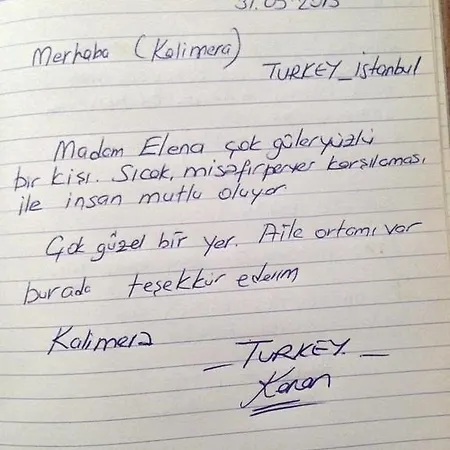 31.05.2013
Merhaba (Kalimera)
TURKEY_istanbul
Madam Elena çok güleryüzlü
bir kişi. Sıcak, misafirperver karşılaması
ile insan mutlu oluyor
Çok güzel bir yer. Aile ortamı var
burada teşekkür ederim
Kalimera
_TURKEY._
Kenan